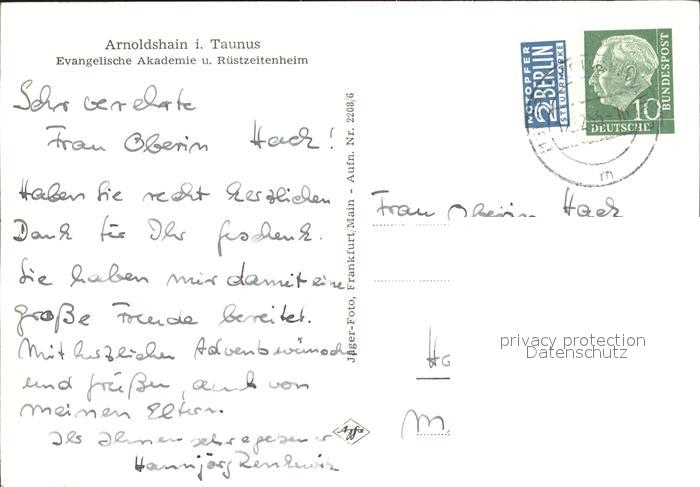 Arnoldshain i. Taunus
Evangelische Akademie u. Rüstzeitenheim
Sehr verehrte
Frau Oberin Hack!
Haben Sie recht herzlichen
Dank für Ihr Geschenk.
Sie haben mir damit eine
große Freude bereitet.
Mit herzlichen Adventswünschen
und Grüßen, auch von
meinen Eltern
Ihr Ihnen sehr ergebener
Hannjörg
Jäger-Foto, Frankfurt/Main - Aufn. Nr. 2208/6
Agfa
NOTOPFER
2 BERLIN
STEUERMARKE
10
DEUTSCHE
BUNDESPOST
m
Frau Oberin Hack
privacy protection
Datenschutz
Ha
M